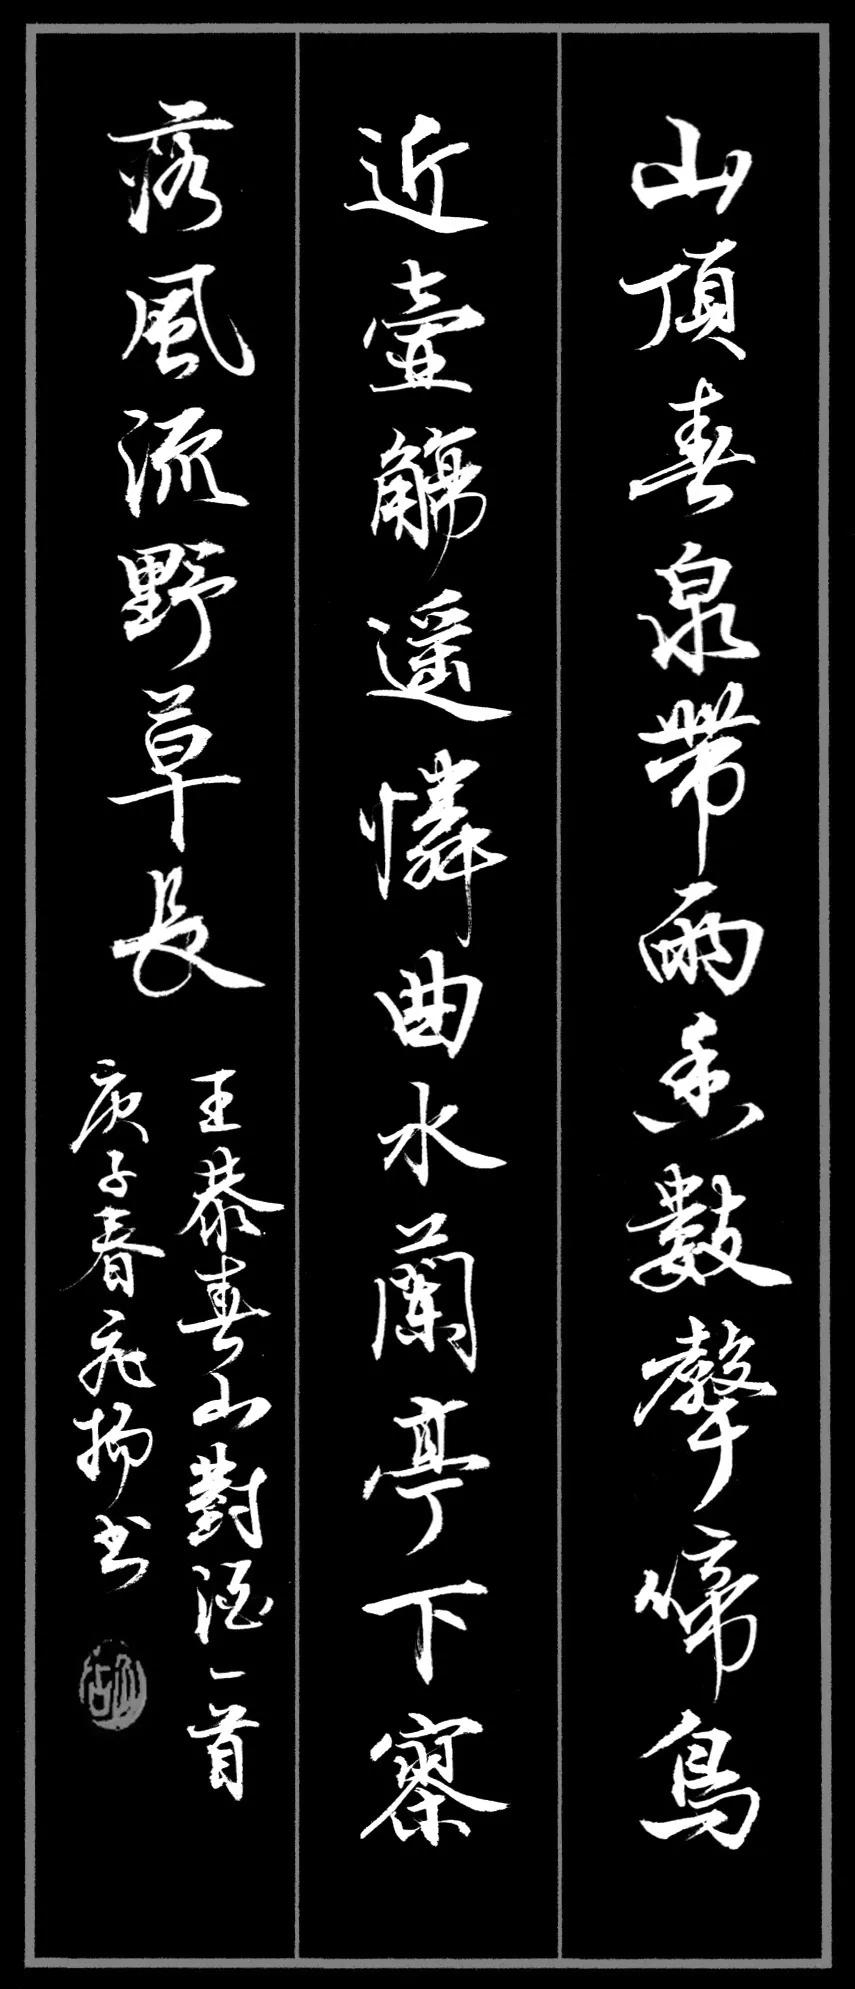 山頂春泉帶雨香數聲啼鳥
近壺觴遥憐曲水蘭亭下寥
落風流野草長
王恭春山對酒一首
庚子春 揚书